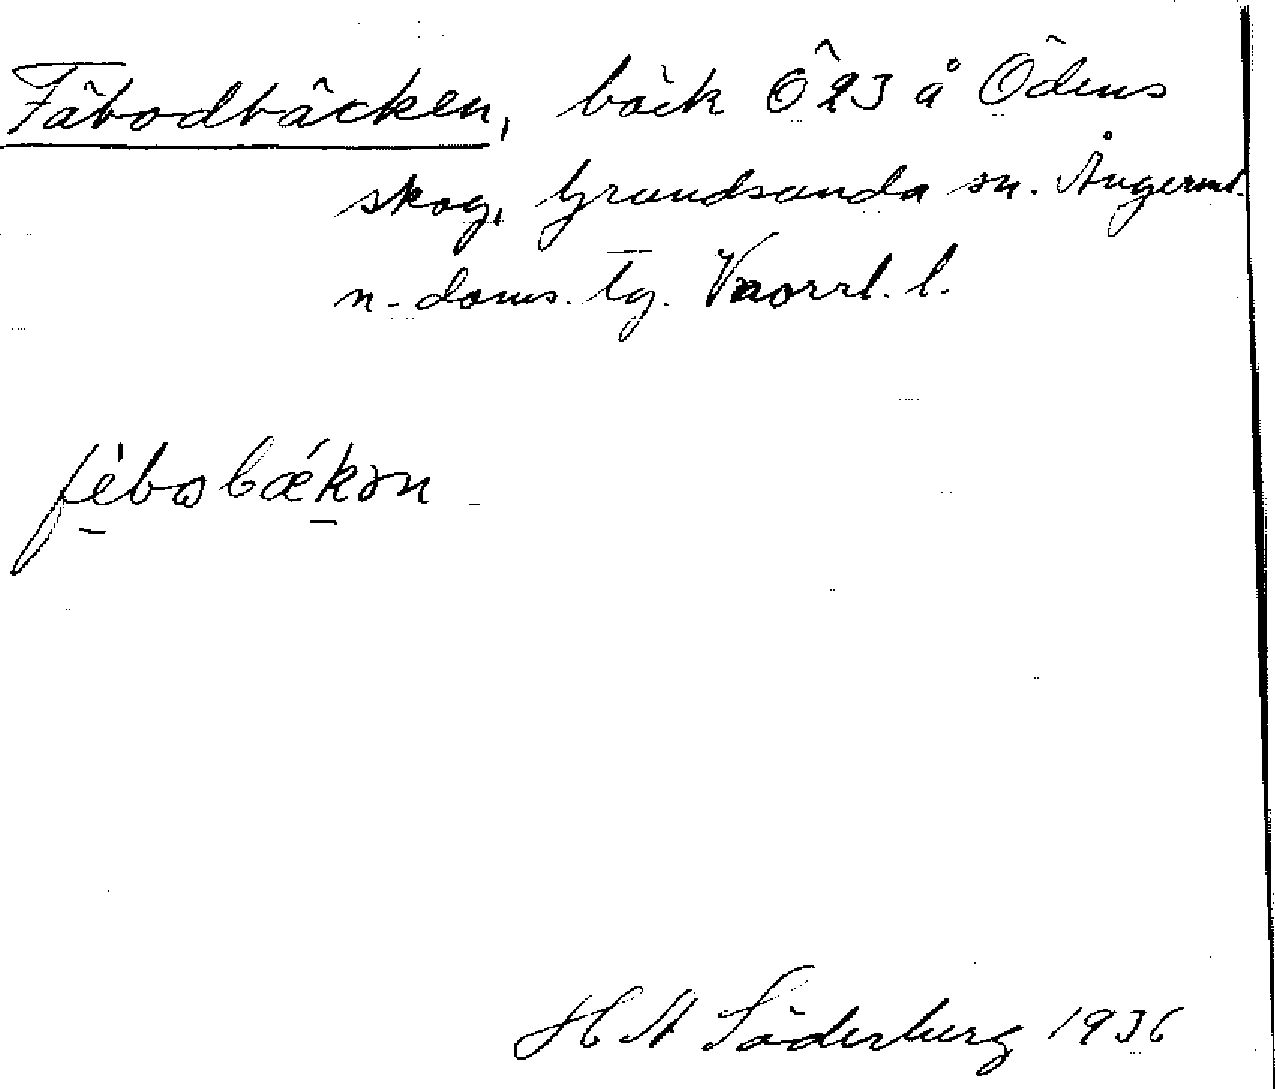 Fäbodbäcken, bäck Ö 23 å Ödens
skog, Grundsunda sn. Ångerml.
n. doms. tg. Vnorrl. l.
fèbωbǽkən
H A Söderberg 1936